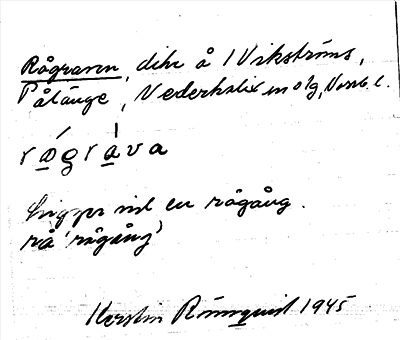 Rågraven, dike å Wikströms,
Pålänge, Nederkalix sn o lg, Norrb. l.
rågrava
Ligger vid en rågång.
rå 'rågång'
Kerstin Rönnquist 1945